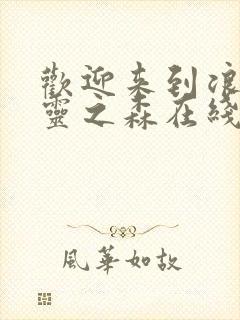 歡迎来到浪
靈之森在綫
風華如故